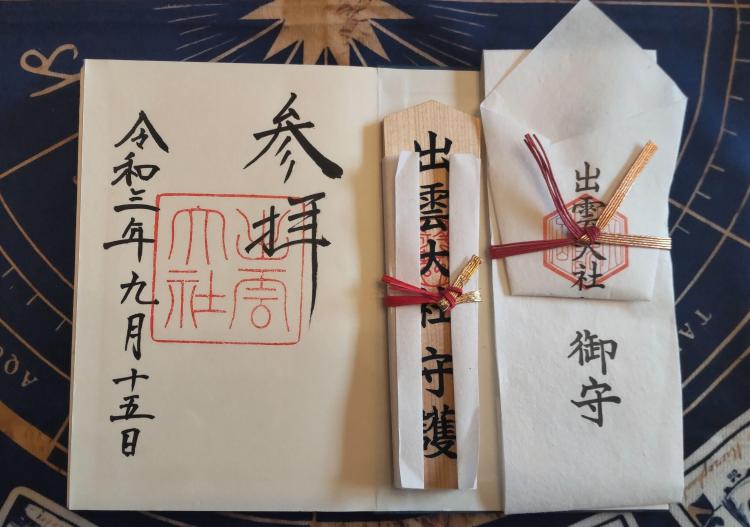 参拝
出雲
大社
令和三年九月十五日
出雲大社守護
出雲大社
御守